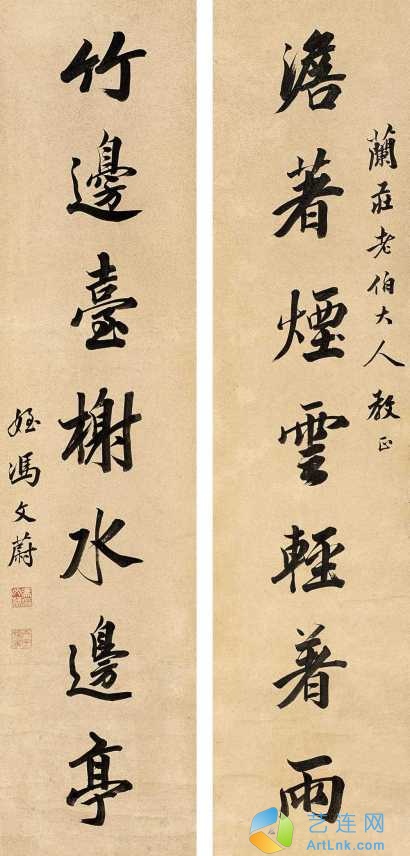 蘭莊老伯大人教正
澹著煙雲輕著雨
竹邊臺榭水邊亭
姪馮文蔚
艺连网
ArtLnk.com